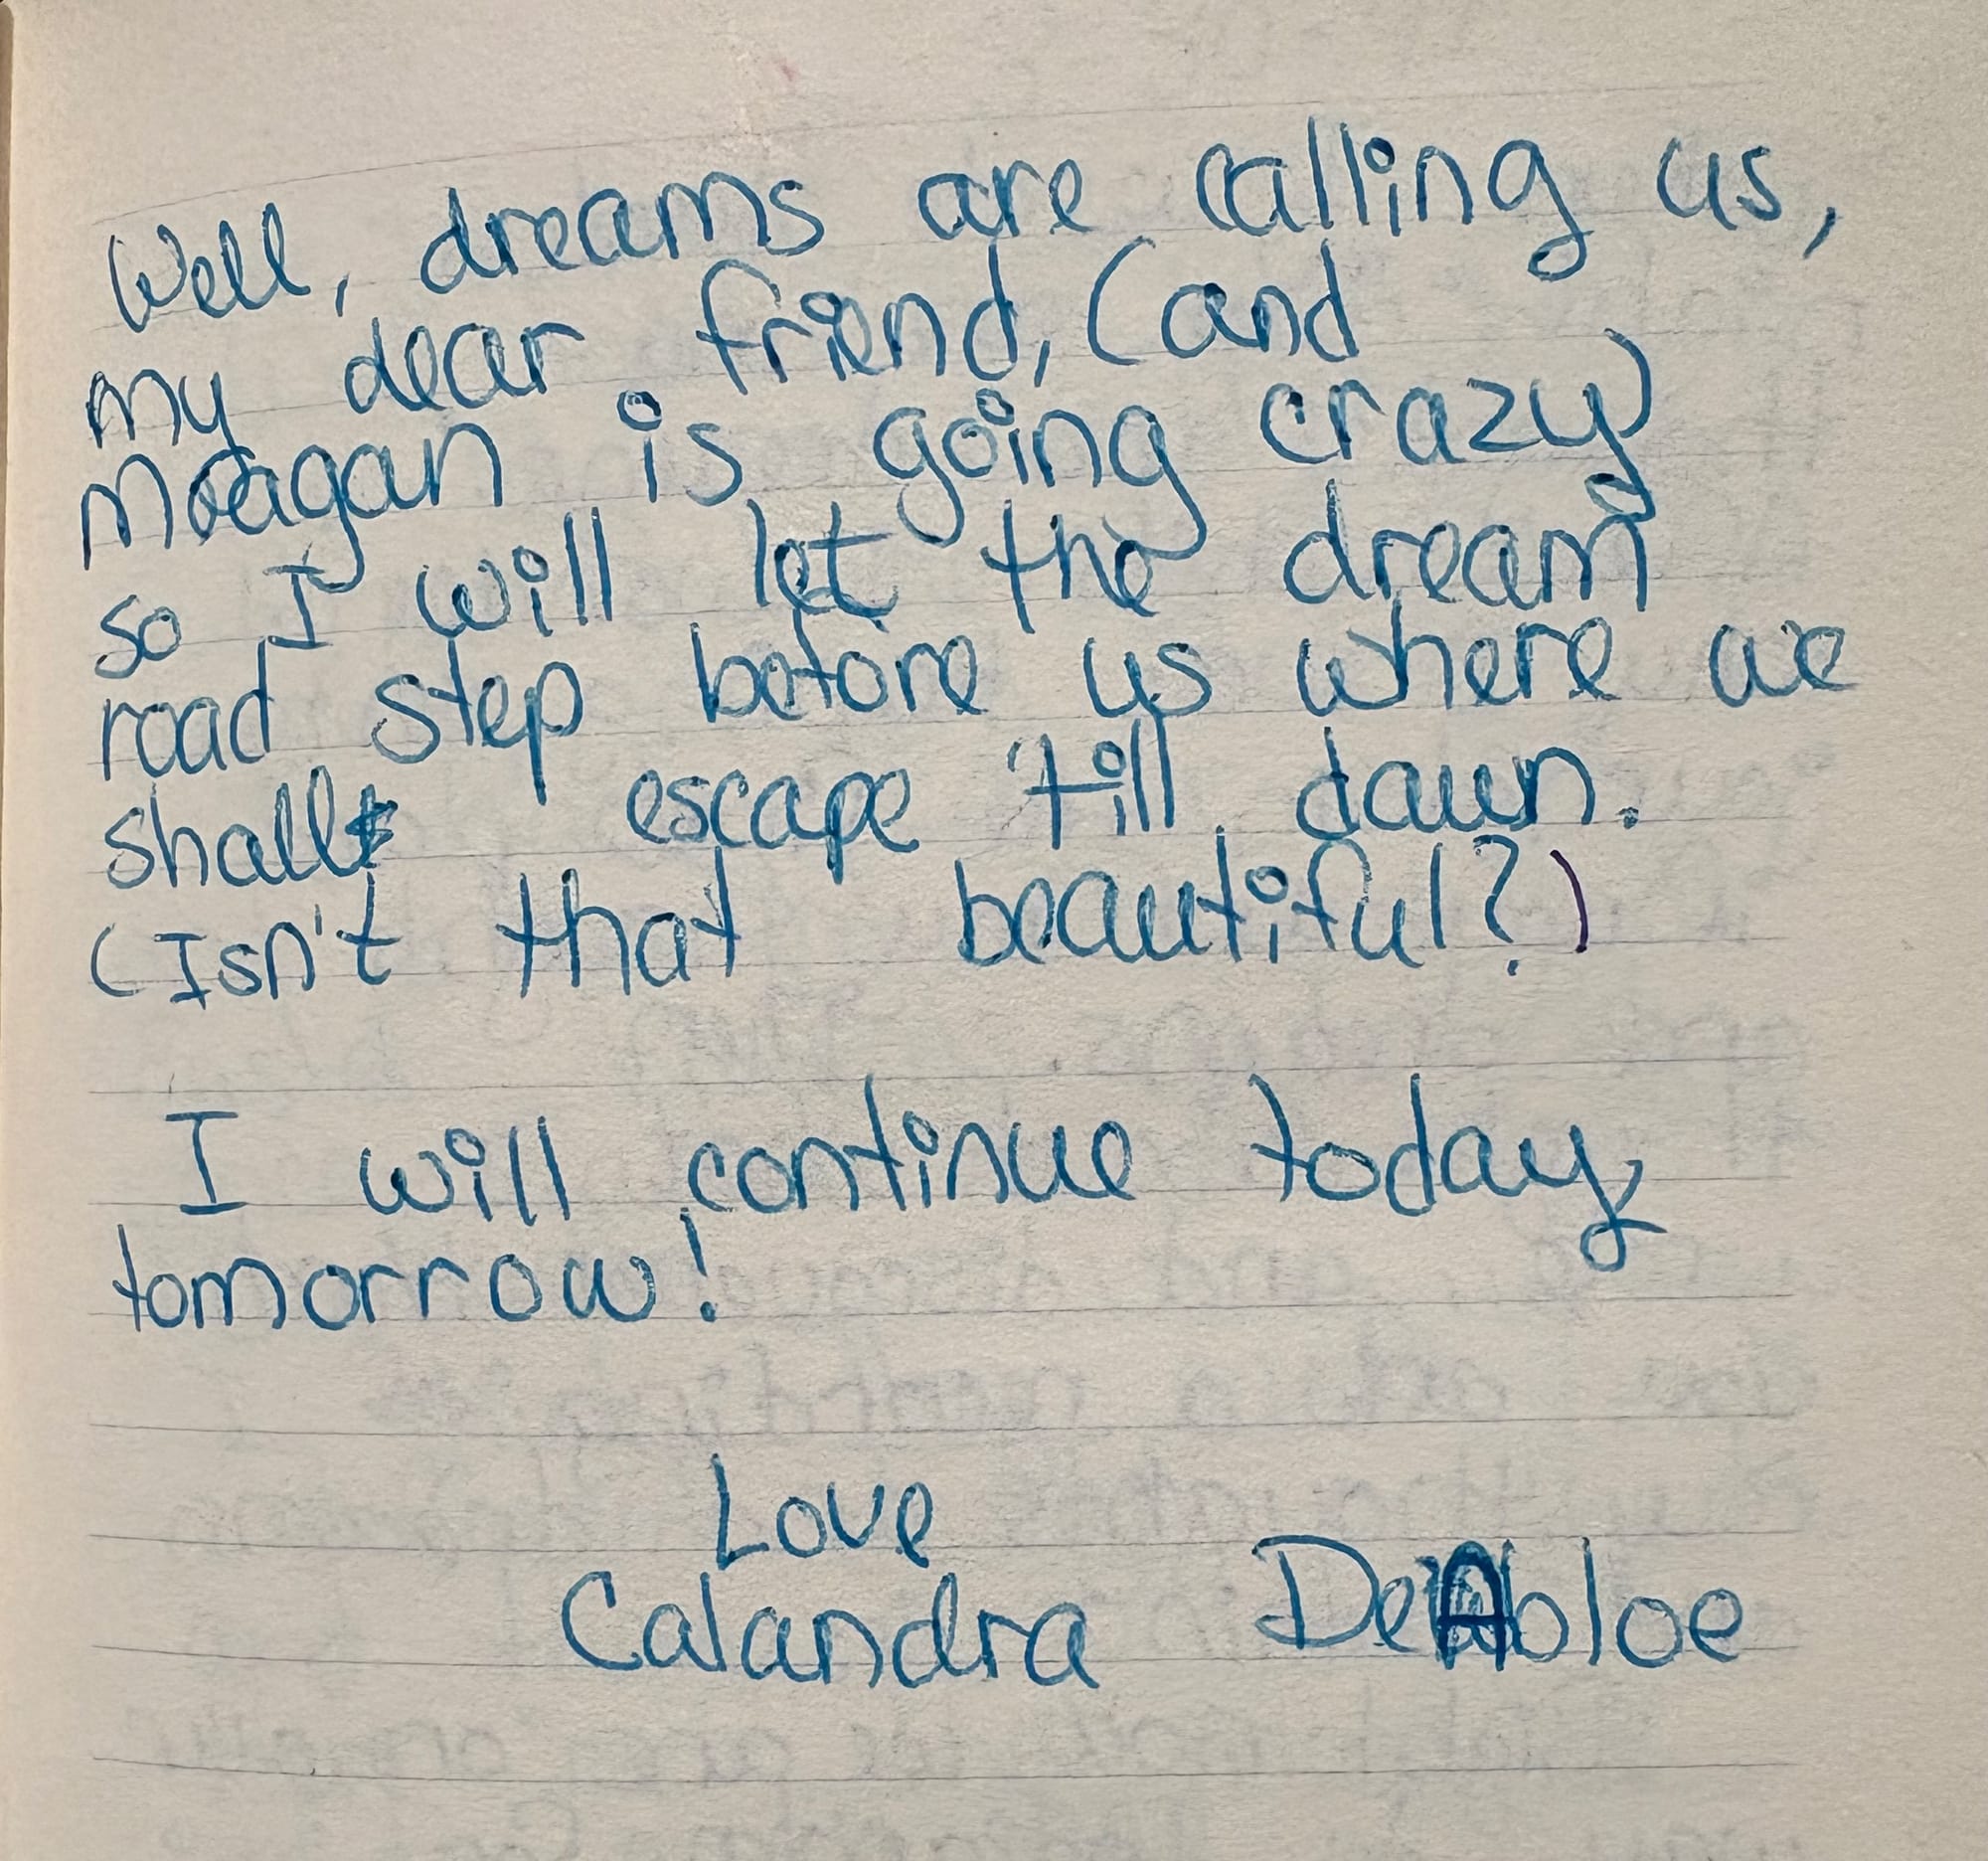 Well, dreams are calling us,
my dear friend, (and
Meagan is going crazy)
so I will let the dream
road step before us where we
shall escape 'till dawn.
(Isn't that beautiful?)
I will continue today
tomorrow!
Love
Calandra DeAbloe